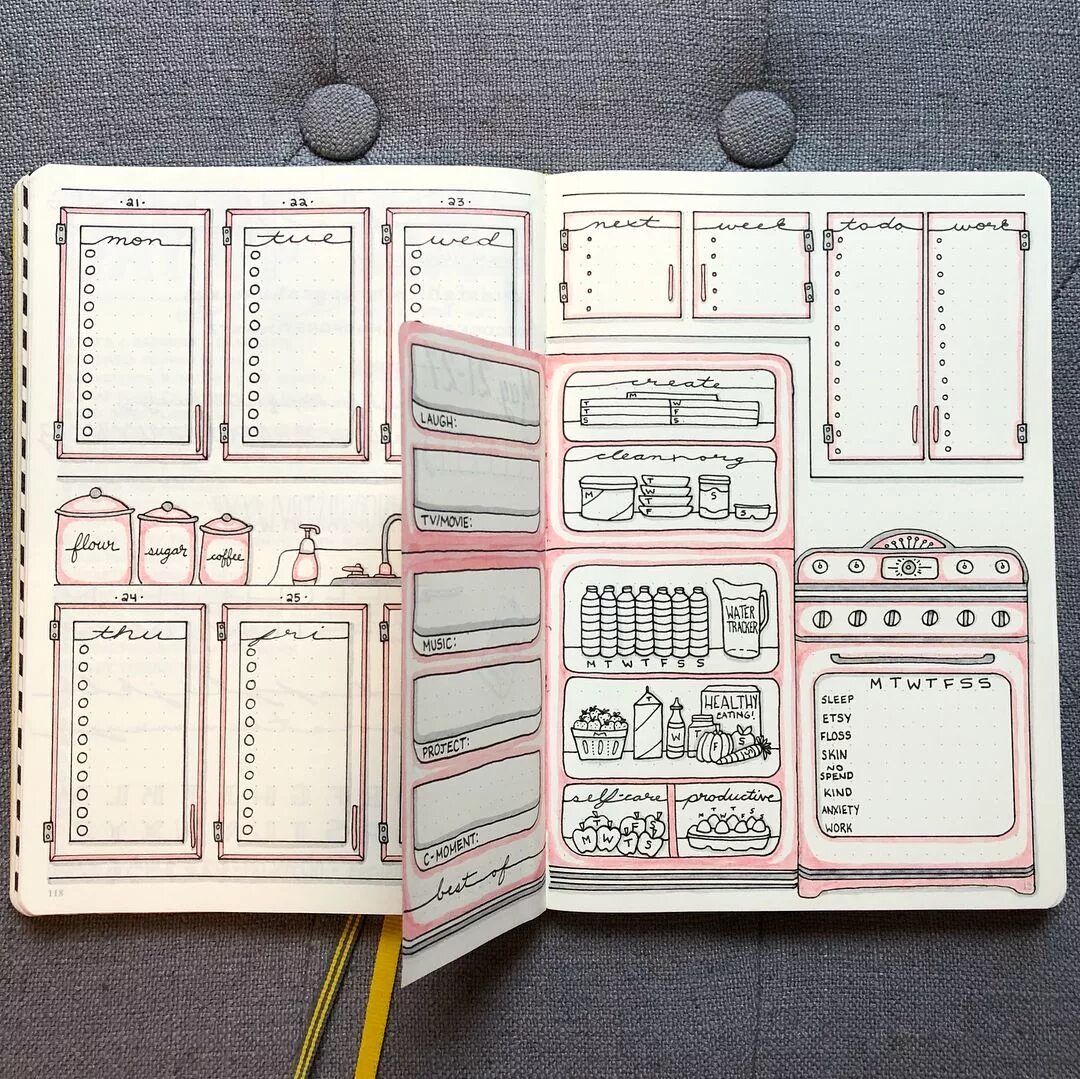 ·21·
·22·
·23·
mon
tue
wed
flour
sugar
coffee
·24·
·25·
thu
fri
118
May 21-27
LAUGH:
TV/MOVIE:
MUSIC:
PROJECT:
C-MOMENT:
best of
next
week
todo
work
create
M
T W
T F
S S
clean + org
M
T
W
T
F
S
S
WATER
TRACKER
M T W T F S S
HEALTHY
EATING!
M
T
W
T
F
S
self-care
T F S
M W T S
productive
M T W T F S S
M T W T F S S
SLEEP
ETSY
FLOSS
SKIN
NO
SPEND
KIND
ANXIETY
WORK